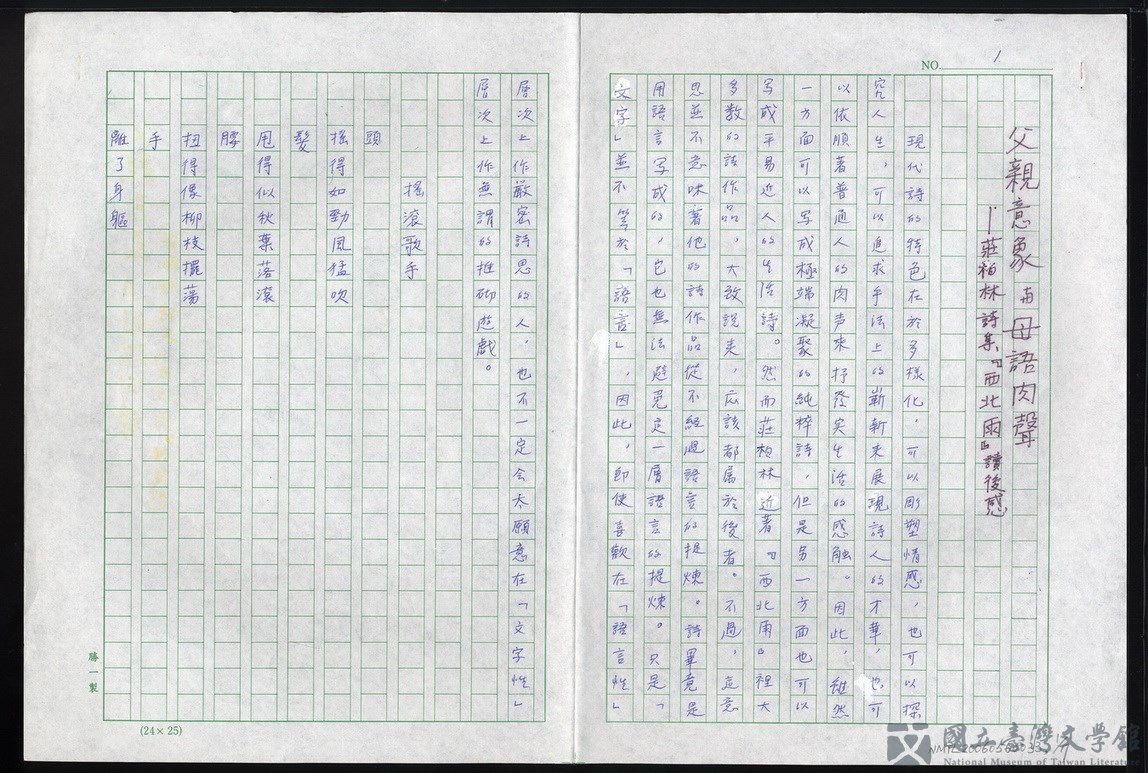 NO. 1
父親意象与母語肉聲
—莊柏林詩集『西北雨』讀後感
現代詩的特色在於多樣化，可以彫塑情感，也可以探
究人生，可以追求手法上的嶄新來展現詩人的才華，也可
以依順著普通人的肉声來抒發实生活的感触。因此，雖然
一方面可以写成極端凝聚的純粹詩，但是另一方面也可以
写成平易近人的生活詩。然而莊柏林近著『西北雨』裡大
多数的詩作品，大致説来，应該都属於後者。不過，這意
思並不意味著他的詩作品從不經過語言的提煉。詩畢竟是
用語言写成的，它也無法避免走一層語言的提煉。只是「
文字」並不等於「語言」，因此，即使喜歡在「語言性」
層次上作嚴密詩思的人，也不一定会太願意在「文字性」
層次上作無謂的推砌遊戲。
搖滾歌手
頭
搖得如勁風猛吹
髮
甩得似秋葉落滾
腰
扭得像柳枝擺蕩
手
離了身軀
勝一製
(24×25)
國立臺灣文學館
National Museum of Taiwan Literature